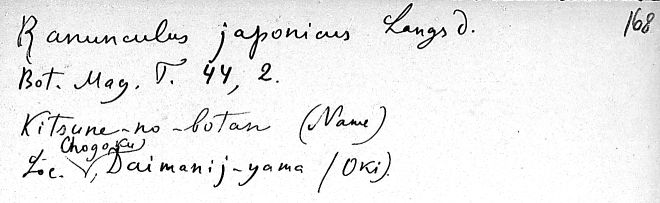 Ranunculus japonicus Langsd. 168
Bot. Mag. T. 44, 2.
Kitsune-no-botan (Name)
Chogoku
Loc. Daimanij-yama (Oki).